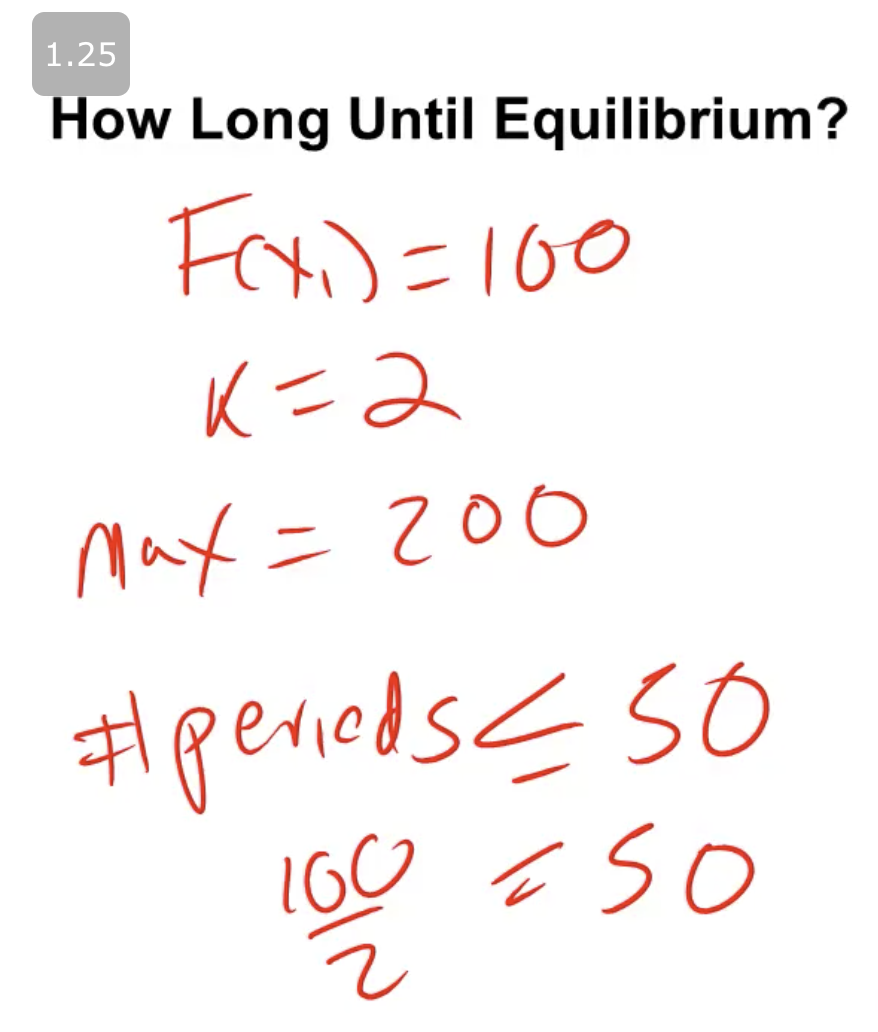 1.25
How Long Until Equilibrium?
F(x₁) = 100
K = 2
Max = 200
# periods ≤ 50
100/2 = 50